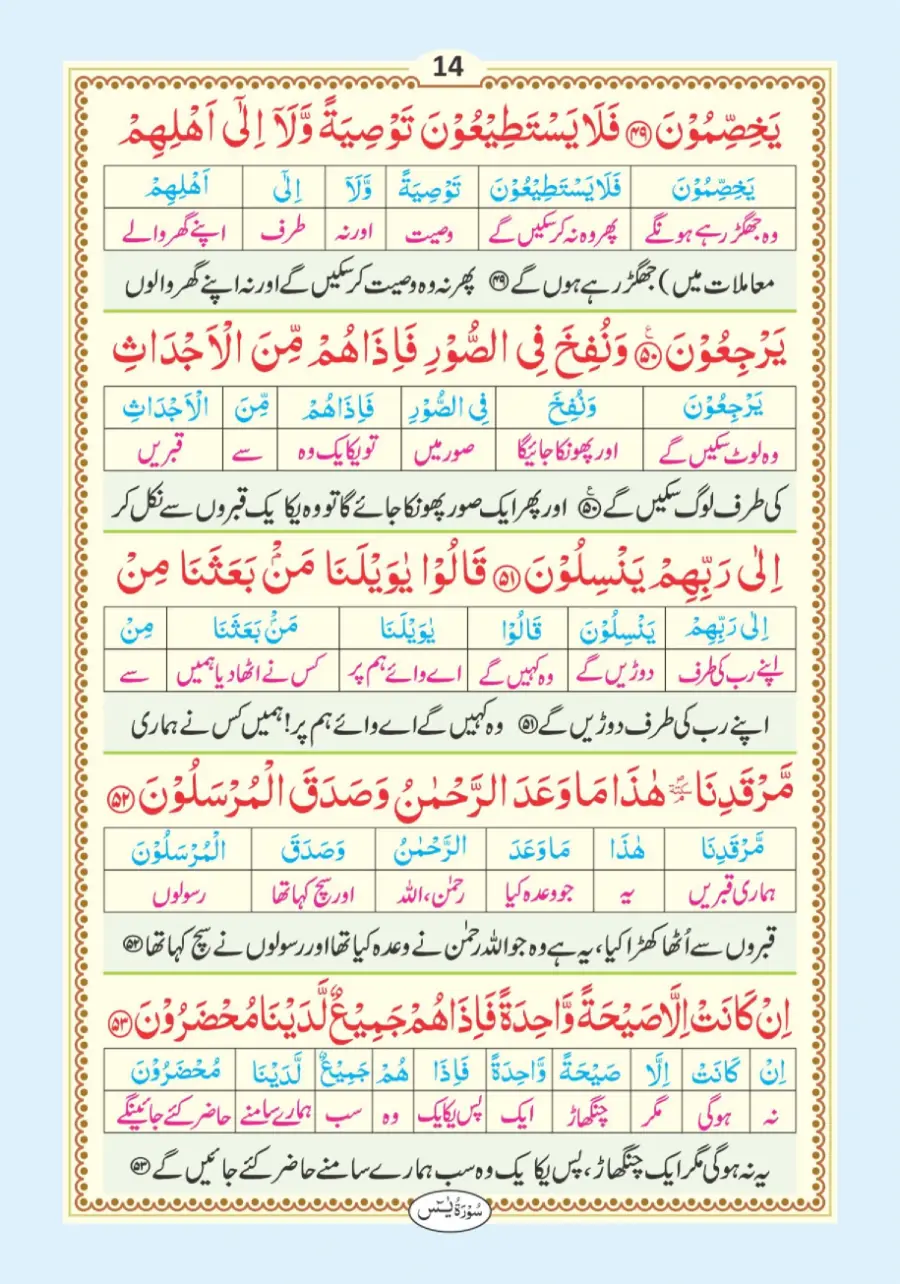 14
يَخِصِّمُوْنَ ﴿۴۹﴾ فَلَا يَسْتَطِيْعُوْنَ تَوْصِيَةً وَّلَاۤ اِلٰۤى اَهْلِهِمْ
يَخِصِّمُوْنَ فَلَا يَسْتَطِيْعُوْنَ تَوْصِيَةً وَّلَاۤ اِلٰۤى اَهْلِهِمْ
وہ جھگڑ رہے ہونگے پھر وہ نہ کرسکیں گے وصیت اور نہ طرف اپنے گھر والے
معاملات میں) جھگڑ رہے ہوں گے ﴿۴۹﴾ پھر نہ وہ وصیت کرسکیں گے اور نہ اپنے گھر والوں
يَرْجِعُوْنَ ﴿۵۰﴾ۧ وَنُفِخَ فِى الصُّوْرِ فَاِذَا هُمْ مِّنَ الْاَجْدَاثِ
يَرْجِعُوْنَ وَنُفِخَ فِى الصُّوْرِ فَاِذَا هُمْ مِّنَ الْاَجْدَاثِ
وہ لوٹ سکیں گے اور پھونکا جائیگا صور میں تو یکایک وہ سے قبریں
کی طرف لوگ سکیں گے ﴿۵۰﴾ۧ اور پھر ایک صور پھونکا جائے گا تو وہ یکا یک قبروں سے نکل کر
اِلٰى رَبِّهِمْ يَنْسِلُوْنَ ﴿۵۱﴾ قَالُوْا يٰوَيْلَنَا مَنْۢ بَعَثَنَا مِنْ
اِلٰى رَبِّهِمْ يَنْسِلُوْنَ قَالُوْا يٰوَيْلَنَا مَنْۢ بَعَثَنَا مِنْ
اپنے رب کی طرف دوڑیں گے وہ کہیں گے اے وائے ہم پر کس نے اٹھا دیا ہمیں سے
اپنے رب کی طرف دوڑیں گے ﴿۵۱﴾ وہ کہیں گے اے وائے ہم پر! ہمیں کس نے ہماری
مَّرْقَدِنَا ۘؐ هٰذَا مَا وَعَدَ الرَّحْمٰنُ وَصَدَقَ الْمُرْسَلُوْنَ ﴿۵۲﴾
مَّرْقَدِنَا هٰذَا مَا وَعَدَ الرَّحْمٰنُ وَصَدَقَ الْمُرْسَلُوْنَ
ہماری قبریں یہ جو وعدہ کیا رحمٰن، اللہ اور سچ کہا تھا رسولوں
قبروں سے اُٹھا کھڑا کیا، یہ ہے وہ جو اللہ رحمٰن نے وعدہ کیا تھا اور رسولوں نے سچ کہا تھا ﴿۵۲﴾
اِنْ كَانَتْ اِلَّا صَيْحَةً وَّاحِدَةً فَاِذَا هُمْ جَمِيْعٌ لَّدَيْنَا مُحْضَرُوْنَ ﴿۵۳﴾
اِنْ كَانَتْ اِلَّا صَيْحَةً وَّاحِدَةً فَاِذَا هُمْ جَمِيْعٌ لَّدَيْنَا مُحْضَرُوْنَ
نہ ہوگی مگر چنگھاڑ ایک پس یکایک وہ سب ہمارے سامنے حاضر کئے جائینگے
یہ نہ ہوگی مگر ایک چنگھاڑ، پس یکا یک وہ سب ہمارے سامنے حاضر کئے جائیں گے ﴿۵۳﴾
سُوْرَةُ يٰسٓ